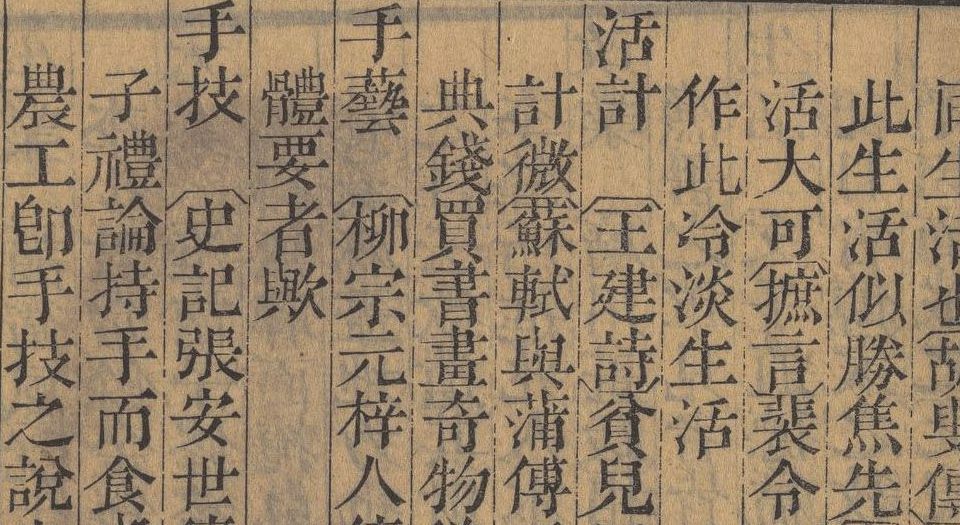 生活也
此生活似勝焦先
活大可摭言裴令
作此冷淡生活
活計 王建詩貧兒
計微蘇軾與蒲傳
典錢買書畫奇物
手藝 柳宗元梓人
體要者歟
手技 史記張安世
子禮論持手而食
農工卽手技之說